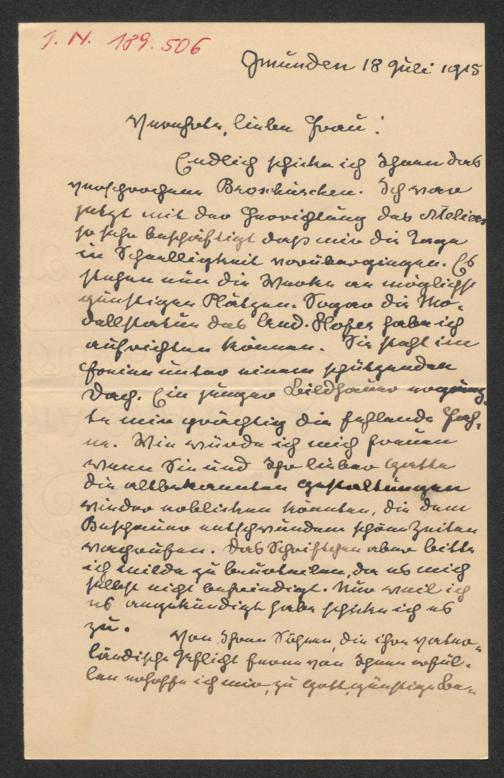 I. N. 189.506
Gmunden 18 Juli 1915
Verehrte, liebe Frau!
Endlich schicke ich Ihnen das
versprochene Broschürchen. Ich war
jetzt mit der Herrichtung des Ateliers
so sehr beschäftigt daß mir die Tage
in Schnelligkeit vorübergingen. Es
stehen nun die Werke an möglichst
günstigen Plätzen. Sogar die Mo-
dellstatue des And. Hofer habe ich
aufrichten können. Sie steht im
Freien unter einem schützenden
Dach. Ein junger Bildhauer ergänz-
te mir prächtig die fehlende Fah-
ne. Wie würde ich mich freuen
wenn Sie und Ihr lieber Gatte
die altbekannten Gestaltungen
wieder erblicken könnten, die dem
Beschauer entschwundene schöne Zeiten
wachrufen. Das Schriftchen aber bitte
ich milde zu beurteilen, da es mich
selbst nicht befriedigt. Nur weil ich
es angekündigt habe schicke ich es
zu.
Von Ihren Söhnen, die ihre vater-
ländische Pflicht ferne von Ihnen erfül-
len erhoffe ich mir, zu Gott, günstige Be-